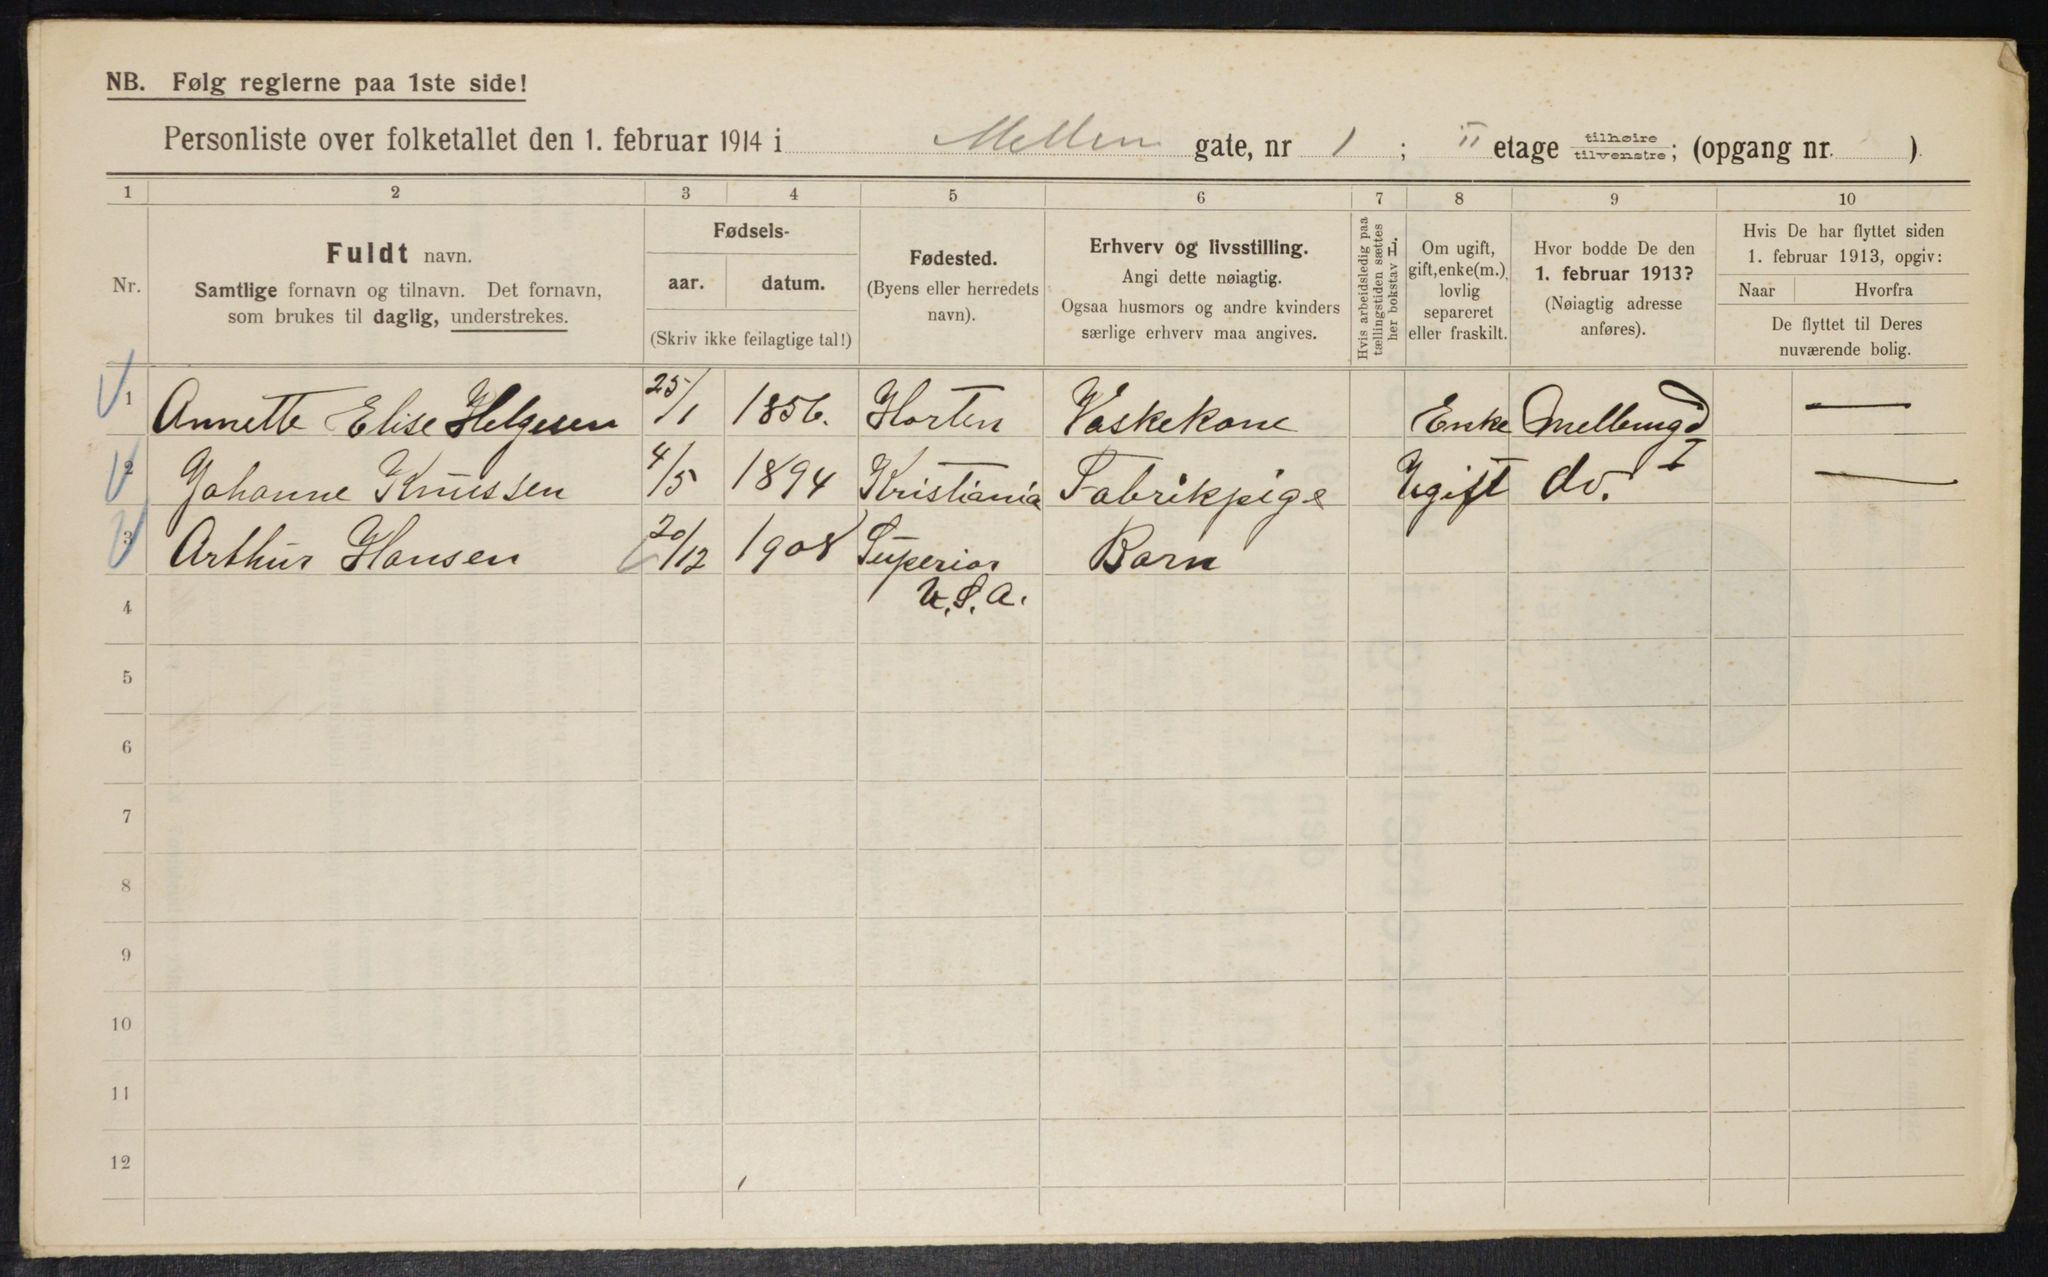 NB. Følg reglerne paa 1ste side!
Personliste over folketallet den 1. februar 1914 i Mellem gate, nr 1 ; II etage tilhøire / tilvenstre; (opgang nr. ).
1 2 3 4 5 6 7 8 9 10
Nr.
Fuldt navn.
Samtlige fornavn og tilnavn. Det fornavn,
som brukes til daglig, understrekes.
Fødsels-
aar. datum.
(Skriv ikke feilagtige tal!)
Fødested.
(Byens eller herredets
navn).
Erhverv og livsstilling.
Angi dette nøiagtig.
Ogsaa husmors og andre kvinders
særlige erhverv maa angives.
Hvis arbeidsledig paa
tællingstiden sættes
her bokstav H.
Om ugift,
gift, enke(m.),
lovlig
separeret
eller fraskilt.
Hvor bodde De den
1. februar 1913?
(Nøiagtig adresse
anføres).
Hvis De har flyttet siden
1. februar 1913, opgiv:
Naar Hvorfra
De flyttet til Deres
nuværende bolig.
1 Annette Elise Helgesen 25/1 1856. Horten Vaskekone Enke Mellemgd 1 —
2 Johanne Knussen 4/5 1894 Kristiania Fabrikpige Ugift do. —
3 Arthur Hansen 20/12 1908 Superior Barn
4 U.S.A.
5
6
7
8
9
10
11
12